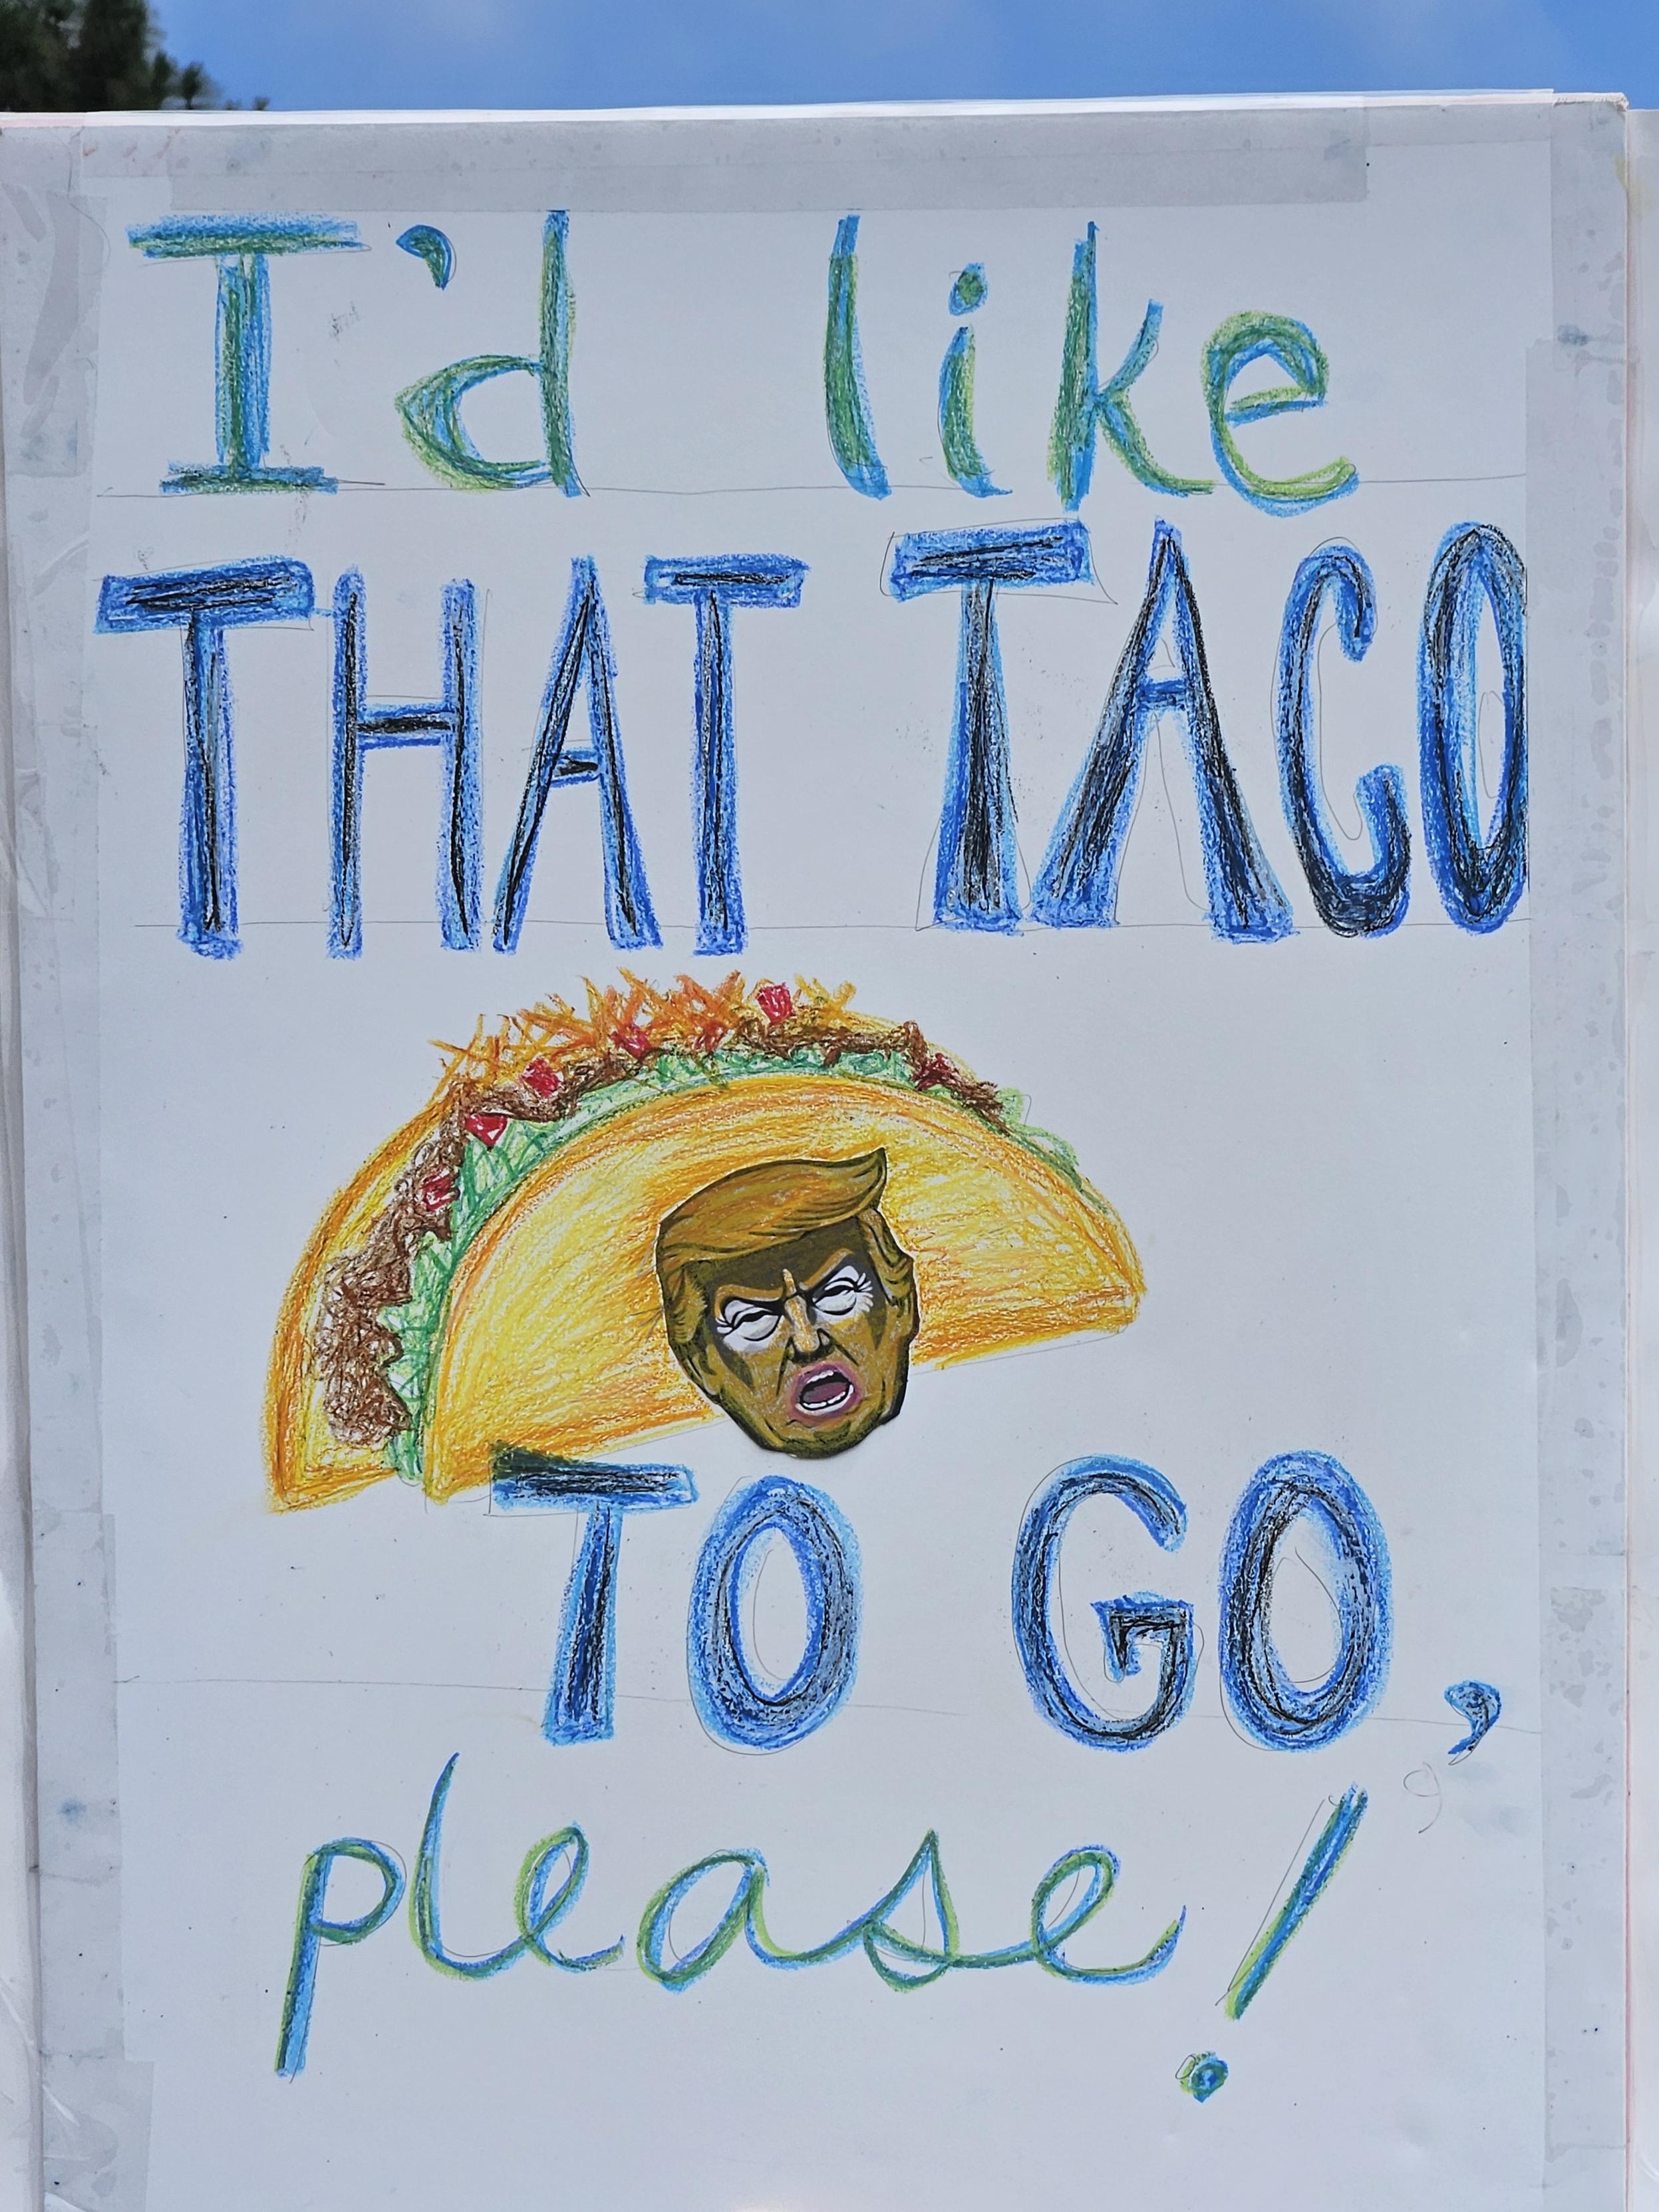 I'd like
THAT TACO
TO GO,
please!